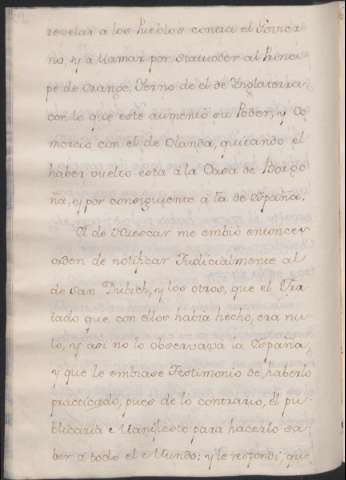 revelar a los Pueblos contra el Govier
no, y a llamar por Statuder al Princi
pe de Orange, Yerno de el de Ynglaterra
con lo que este aumentó su Poder, y Co
mercio con el de Olanda, quitando el
haver vuelto esta à la Casa de Borgo
ña, y por consiguiente à la de España.
El de Huescar me embió entonces
orden de notificar Judicialmente al
de San Dubich, y los otros, que el Tra
tado que con ellos havia hecho, era nu
lo, y asi no lo observava la España,
y que le embiase Testimonio de haberlo
practicado, pues de lo contrario, el pu
blicaria el Manifiesto para hacerlo sa
ber à todo el Mundo; y le respondi que